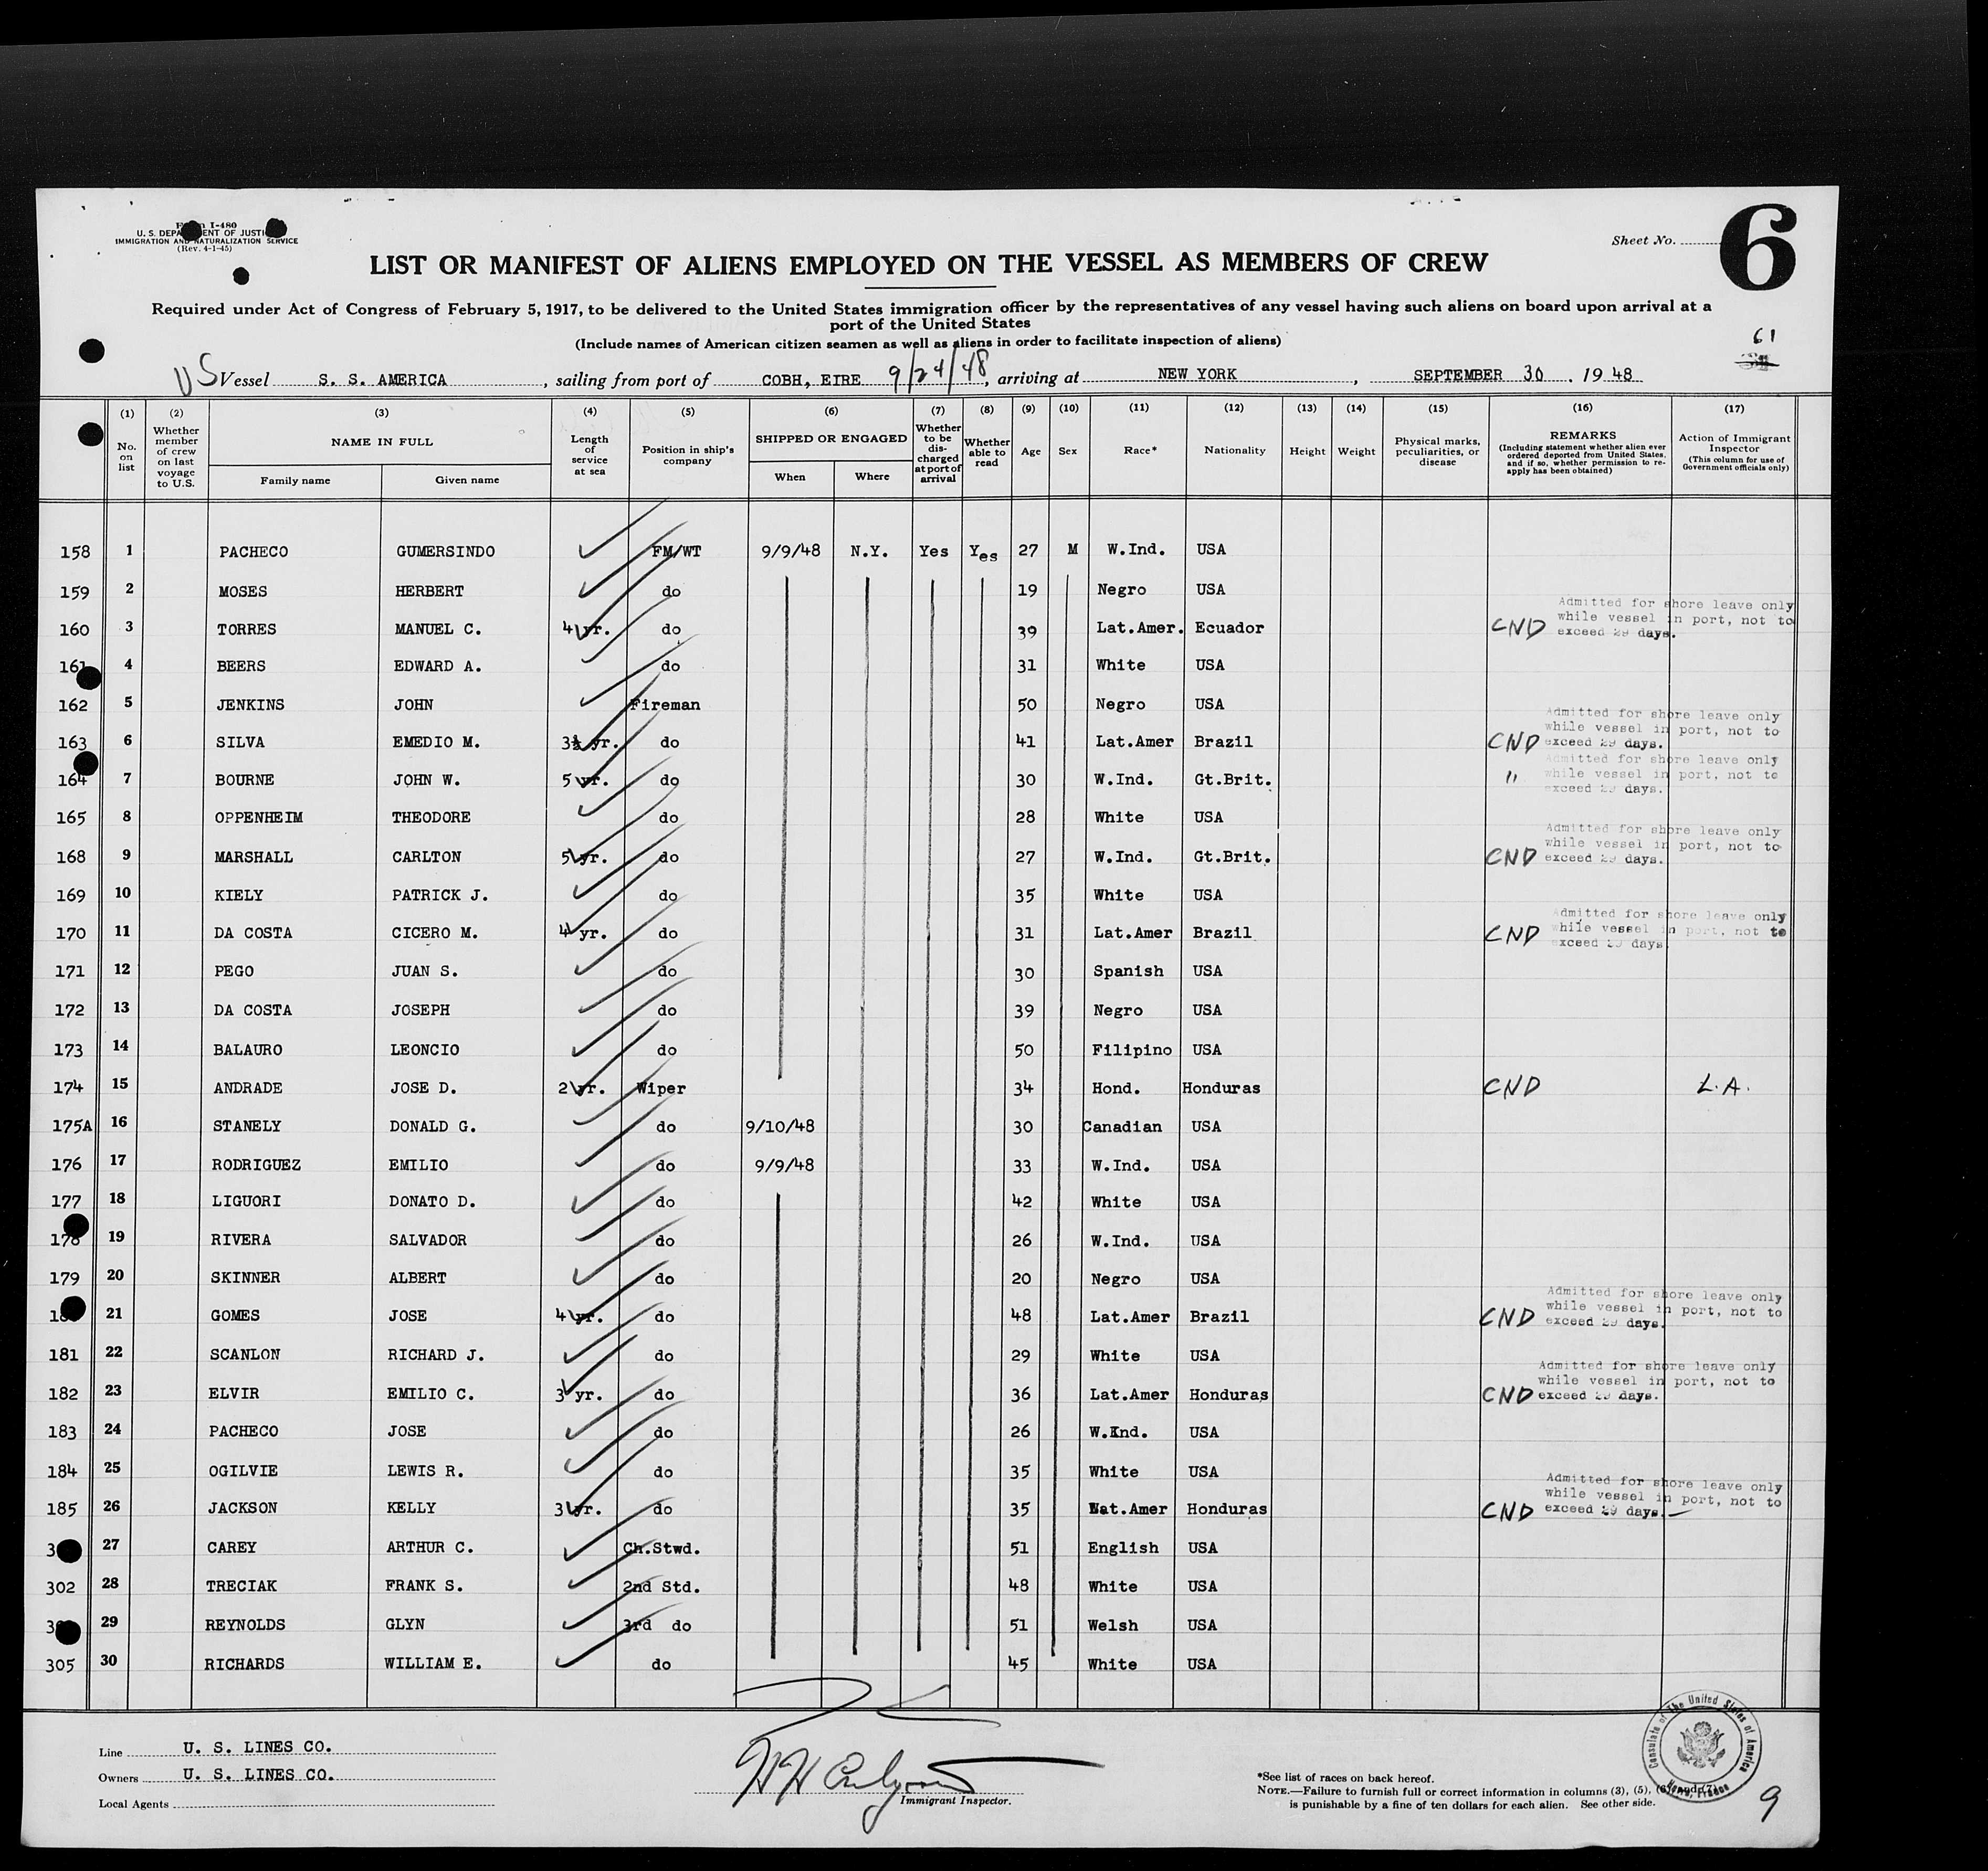 Form I-480
U. S. DEPARTMENT OF JUSTICE
IMMIGRATION AND NATURALIZATION SERVICE
(Rev. 4-1-45)
Sheet No. 6
LIST OR MANIFEST OF ALIENS EMPLOYED ON THE VESSEL AS MEMBERS OF CREW
Required under Act of Congress of February 5, 1917, to be delivered to the United States immigration officer by the representatives of any vessel having such aliens on board upon arrival at a
port of the United States
(Include names of American citizen seamen as well as aliens in order to facilitate inspection of aliens)
61
US Vessel S. S. AMERICA, sailing from port of COBH, EIRE 9/24/48, arriving at NEW YORK, SEPTEMBER 30, 1948
(1) (2) (3) (4) (5) (6) (7) (8) (9) (10) (11) (12) (13) (14) (15) (16) (17)
No. on list
Whether member of crew on last voyage to U.S.
NAME IN FULL
Family name Given name
Length of service at sea
Position in ship's company
SHIPPED OR ENGAGED
When Where
Whether to be discharged at port of arrival
Whether able to read
Age
Sex
Race*
Nationality
Height
Weight
Physical marks, peculiarities, or disease
REMARKS
(Including statement whether alien ever ordered deported from United States, and if so, whether permission to reapply has been obtained)
Action of Immigrant Inspector
(This column for use of Government officials only)
158 1 PACHECO GUMERSINDO FM/WT 9/9/48 N.Y. Yes Yes 27 M W.Ind. USA
159 2 MOSES HERBERT do 19 Negro USA
160 3 TORRES MANUEL C. 4 yr. do 39 Lat.Amer. Ecuador CND Admitted for shore leave only while vessel in port, not to exceed 29 days.
161 4 BEERS EDWARD A. do 31 White USA
162 5 JENKINS JOHN Fireman 50 Negro USA
163 6 SILVA EMEDIO M. 3½ yr. do 41 Lat.Amer Brazil CND Admitted for shore leave only while vessel in port, not to exceed 29 days.
164 7 BOURNE JOHN W. 5 yr. do 30 W.Ind. Gt.Brit. " Admitted for shore leave only while vessel in port, not to exceed 29 days.
165 8 OPPENHEIM THEODORE do 28 White USA
168 9 MARSHALL CARLTON 5 yr. do 27 W.Ind. Gt.Brit. CND Admitted for shore leave only while vessel in port, not to exceed 29 days.
169 10 KIELY PATRICK J. do 35 White USA
170 11 DA COSTA CICERO M. 4 yr. do 31 Lat.Amer Brazil CND Admitted for shore leave only while vessel in port, not to exceed 29 days
171 12 PEGO JUAN S. do 30 Spanish USA
172 13 DA COSTA JOSEPH do 39 Negro USA
173 14 BALAURO LEONCIO do 50 Filipino USA
174 15 ANDRADE JOSE D. 2 yr. Wiper 34 Hond. Honduras CND L.A.
175A 16 STANELY DONALD G. do 9/10/48 30 Canadian USA
176 17 RODRIGUEZ EMILIO do 9/9/48 33 W.Ind. USA
177 18 LIGUORI DONATO D. do 42 White USA
178 19 RIVERA SALVADOR do 26 W.Ind. USA
179 20 SKINNER ALBERT do 20 Negro USA
21 GOMES JOSE 4 yr. do 48 Lat.Amer Brazil CND Admitted for shore leave only while vessel in port, not to exceed 29 days.
181 22 SCANLON RICHARD J. do 29 White USA
182 23 ELVIR EMILIO C. 3 yr. do 36 Lat.Amer Honduras CND Admitted for shore leave only while vessel in port, not to exceed 29 days.
183 24 PACHECO JOSE do 26 W.Ind. USA
184 25 OGILVIE LEWIS R. do 35 White USA
185 26 JACKSON KELLY 3 yr. do 35 Lat.Amer Honduras CND Admitted for shore leave only while vessel in port, not to exceed 29 days.
27 CAREY ARTHUR C. Ch.Stwd. 51 English USA
302 28 TRECIAK FRANK S. 2nd Std. 48 White USA
29 REYNOLDS GLYN 3rd do 51 Welsh USA
305 30 RICHARDS WILLIAM E. do 45 White USA
Line U. S. LINES CO.
Owners U. S. LINES CO.
Local Agents
Immigrant Inspector.
*See list of races on back hereof.
NOTE.—Failure to furnish full or correct information in columns (3), (5), (6) and (7)
is punishable by a fine of ten dollars for each alien. See other side.
Consulate of The United States of America
Havre, France
9